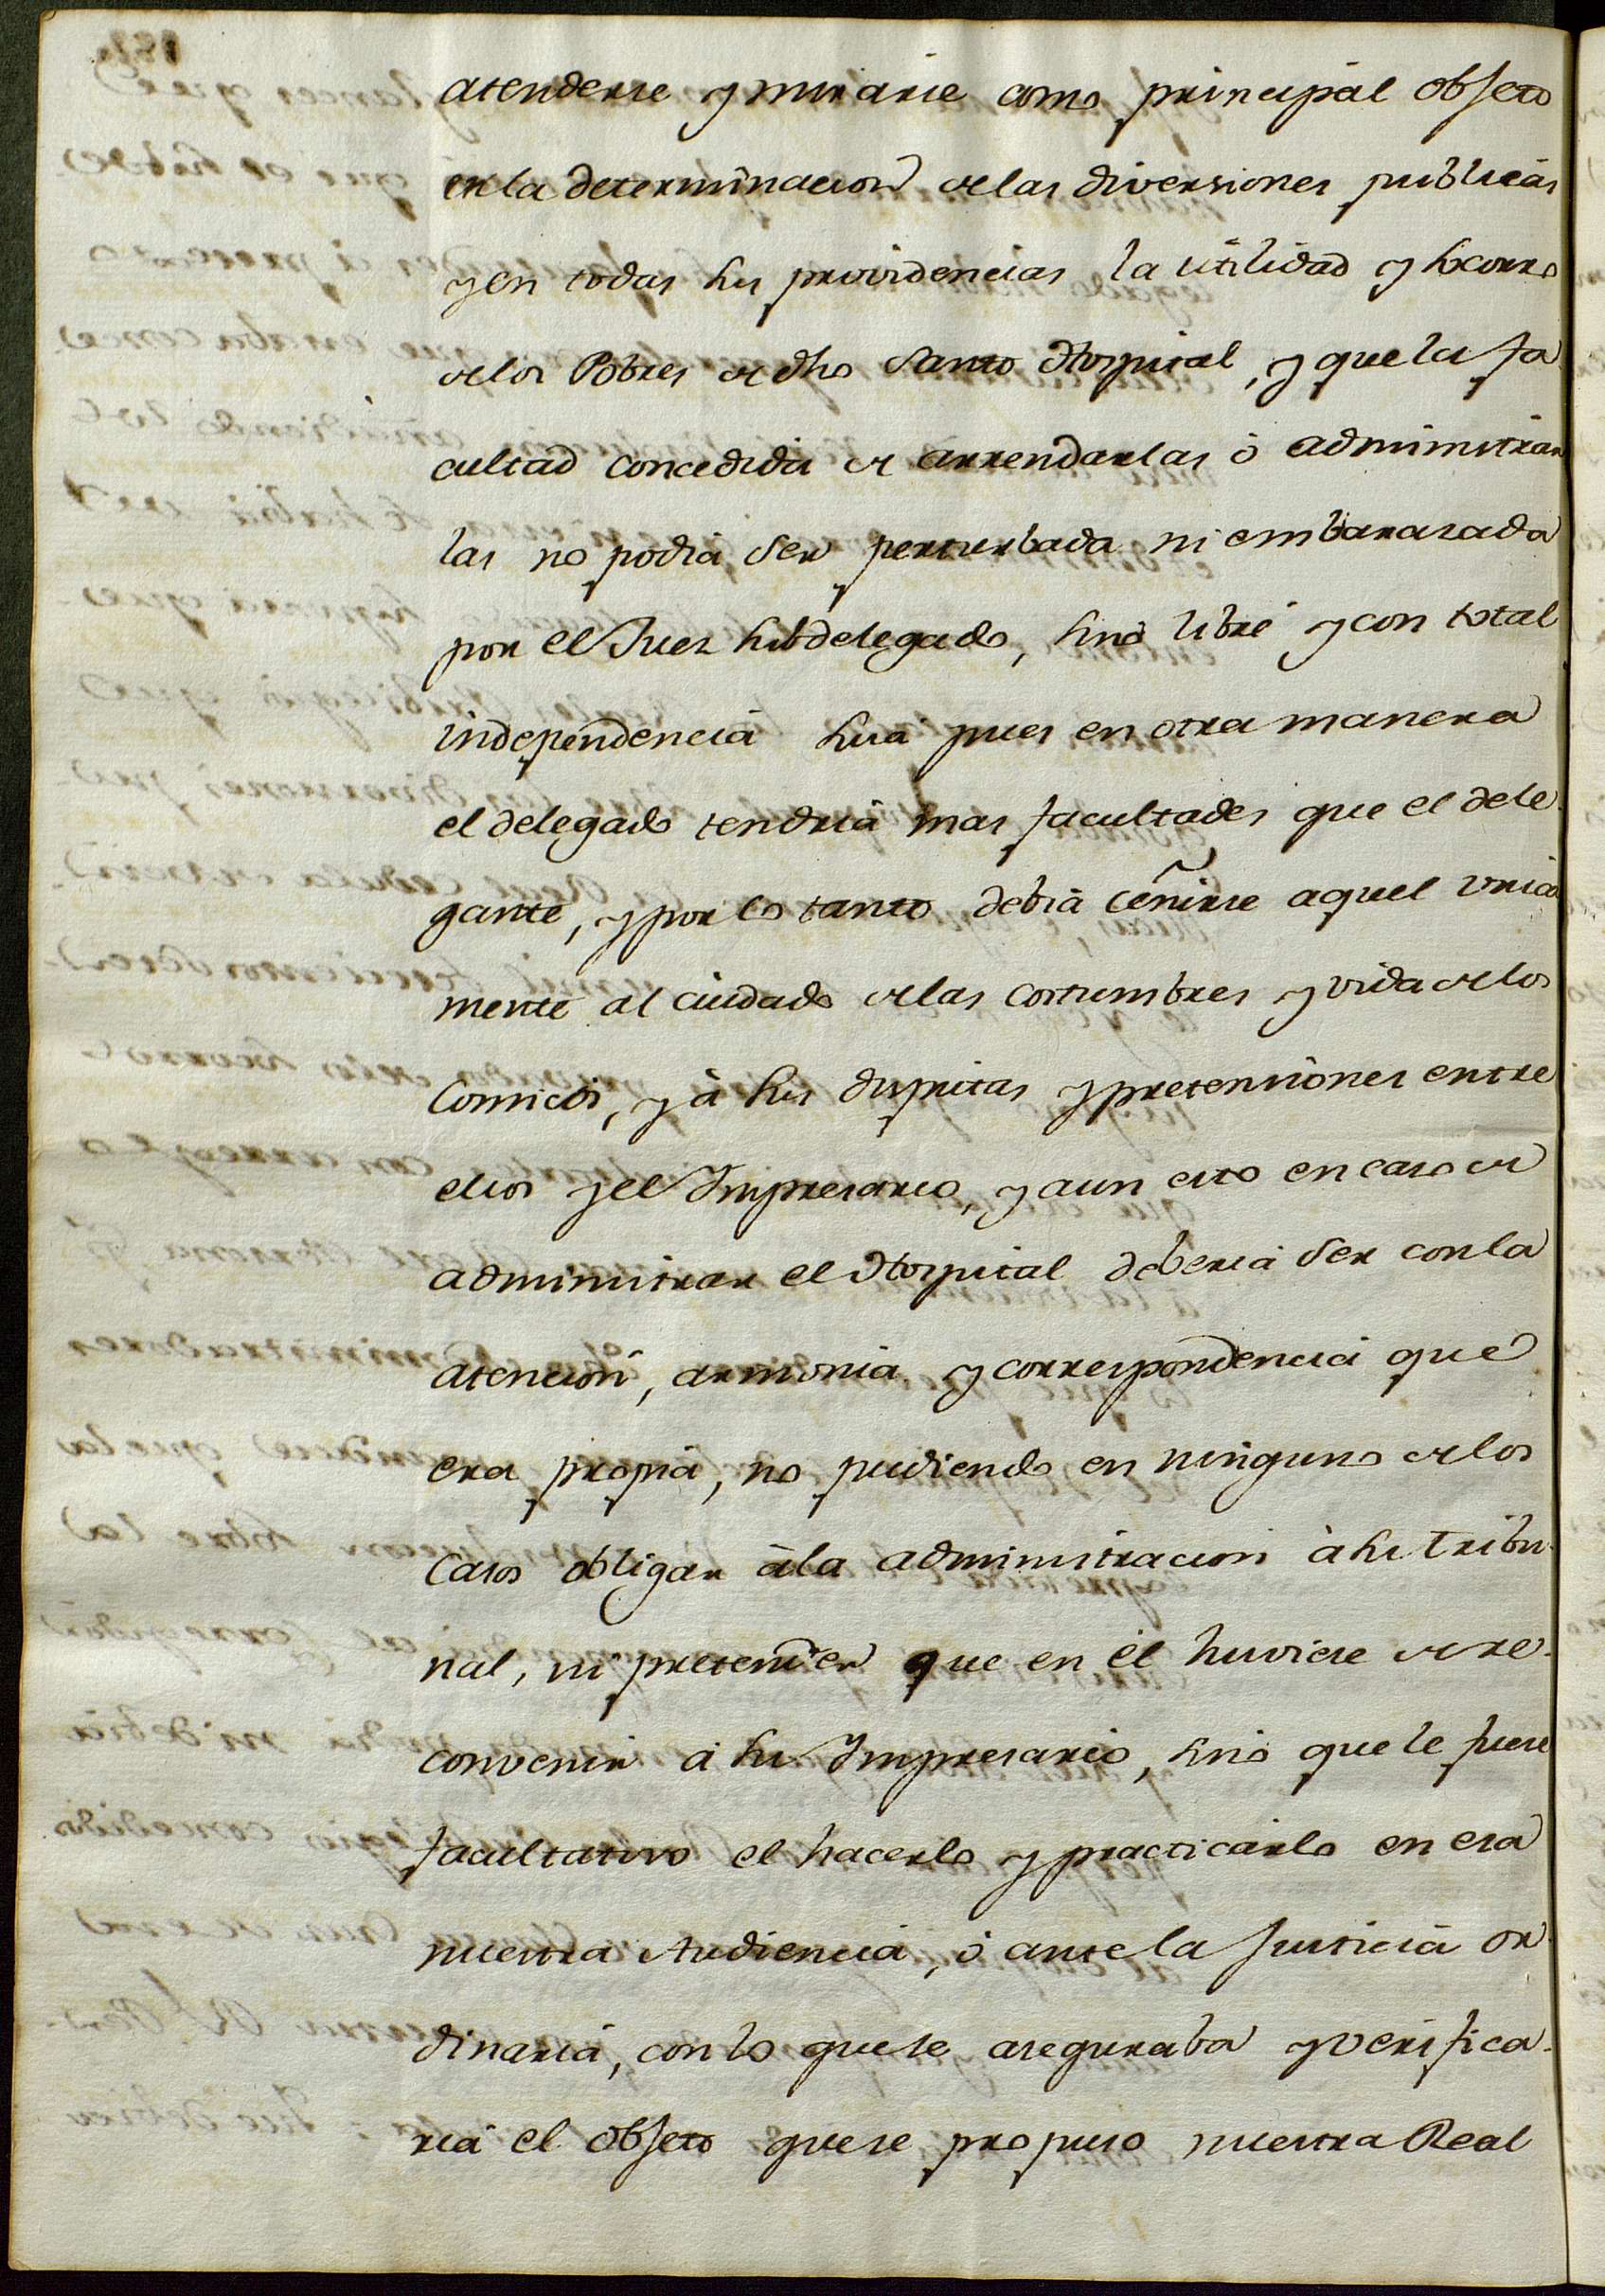 atenderse y mirarse como principal objeto
en la determinacion de las diversiones publicas
y en todas sus providencias la utilidad y socorro
de los Pobres de dho Santo Hospital, y que la fa
cultad concedida de arrendarlas ó administrar
las no podia ser perturbada ni embarasada
por el Juez subdelegado, sino libre y con total
independencia suia pues en otra manera
el delegado tendria mas facultades que el dele
gante, y por lo tanto debia ceñirse aquel unica
mente al ciudado de las costumbres y vida de los
Comicos, y á sus disputas y pretensiones entre
ellos y el Impresario, y aun esto en caso de
administrar el Hospital deberia ser con la
atencion, armonia y correspondencia que
era propia, no pudiendo en ninguno de los
casos obligar á la administracion á su Tribu
nal, ni pretender que en él huviese de re
convenir á su Impresario, sino que le fuese
facultativo el hacerlo y practicarlo en esa
nuestra Audiencia, ó ante la Justicia or
dinaria, con lo que se aseguraba y verifica
ria el objeto que se propuso nuestra Real